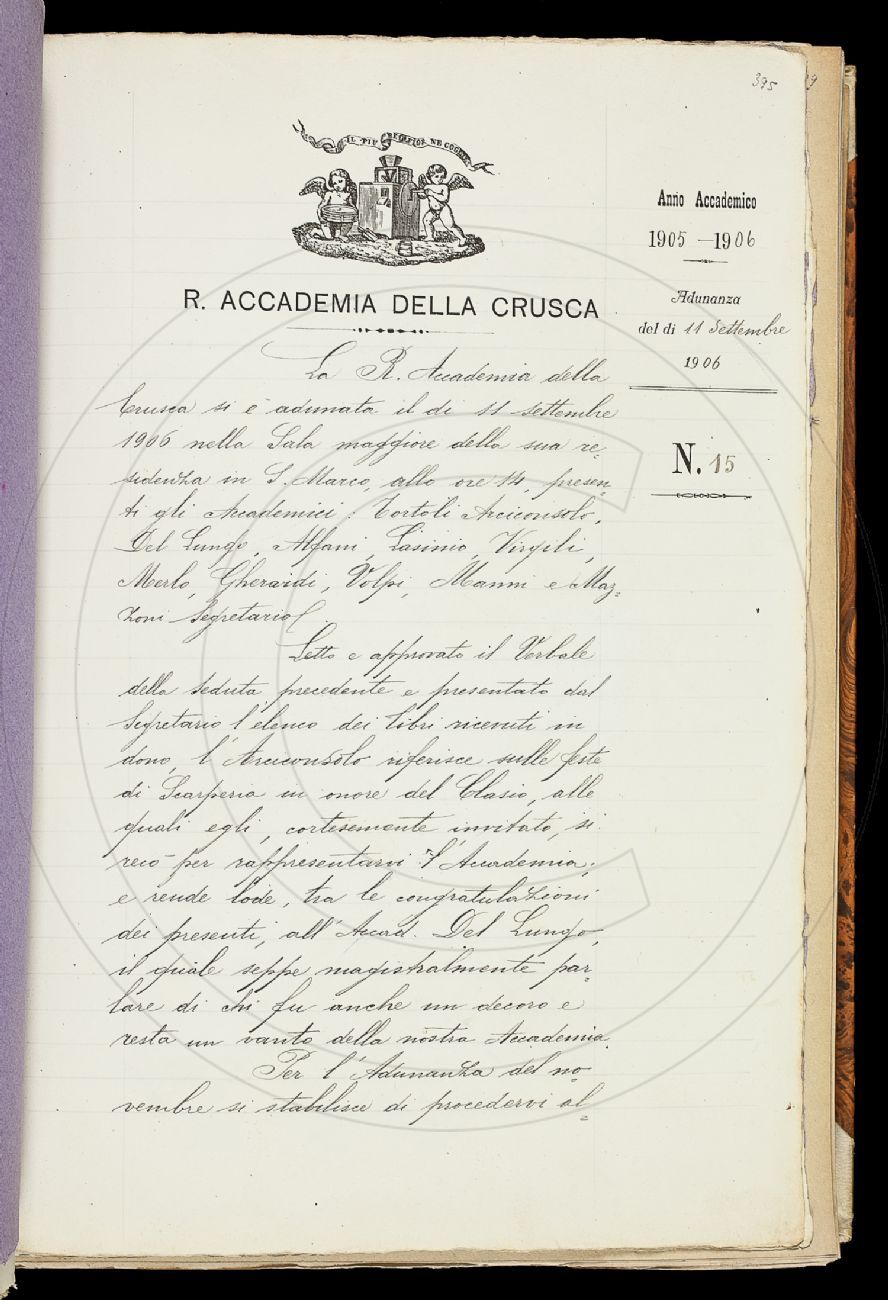 395
IL PIÙ BEL FIOR NE COGLIE
Anno Accademico
1905-1906
Adunanza
del dì 11 Settembre
1906
N. 15
R. ACCADEMIA DELLA CRUSCA
La R. Accademia della
Crusca si è adunata il dì 11 settembre
1906 nella Sala maggiore della sua re=
sidenza in S. Marco, alle ore 14, presen=
ti gli Accademici: Tortoli Arciconsolo,
Del Lungo, Alfani, Lasinio, Virgili,
Merlo, Gherardi, Volpi, Manni e Maz=
zoni Segretario.
Letto e approvato il Verbale
della seduta precedente e presentato dal
Segretario l'elenco dei libri ricevuti in
dono, l'Arciconsolo riferisce sulle feste
di Scarperia in onore del Clasio, alle
quali egli, cortesemente invitato, si
recò per rappresentarvi l'Accademia;
e rende lode, tra le congratulazioni
dei presenti, all'Accad. Del Lungo,
il quale seppe magistralmente par=
lare di chi fu anche un decoro e
resta un vanto della nostra Accademia.
Per l'Adunanza del no=
vembre si stabilisce di procedervi al=